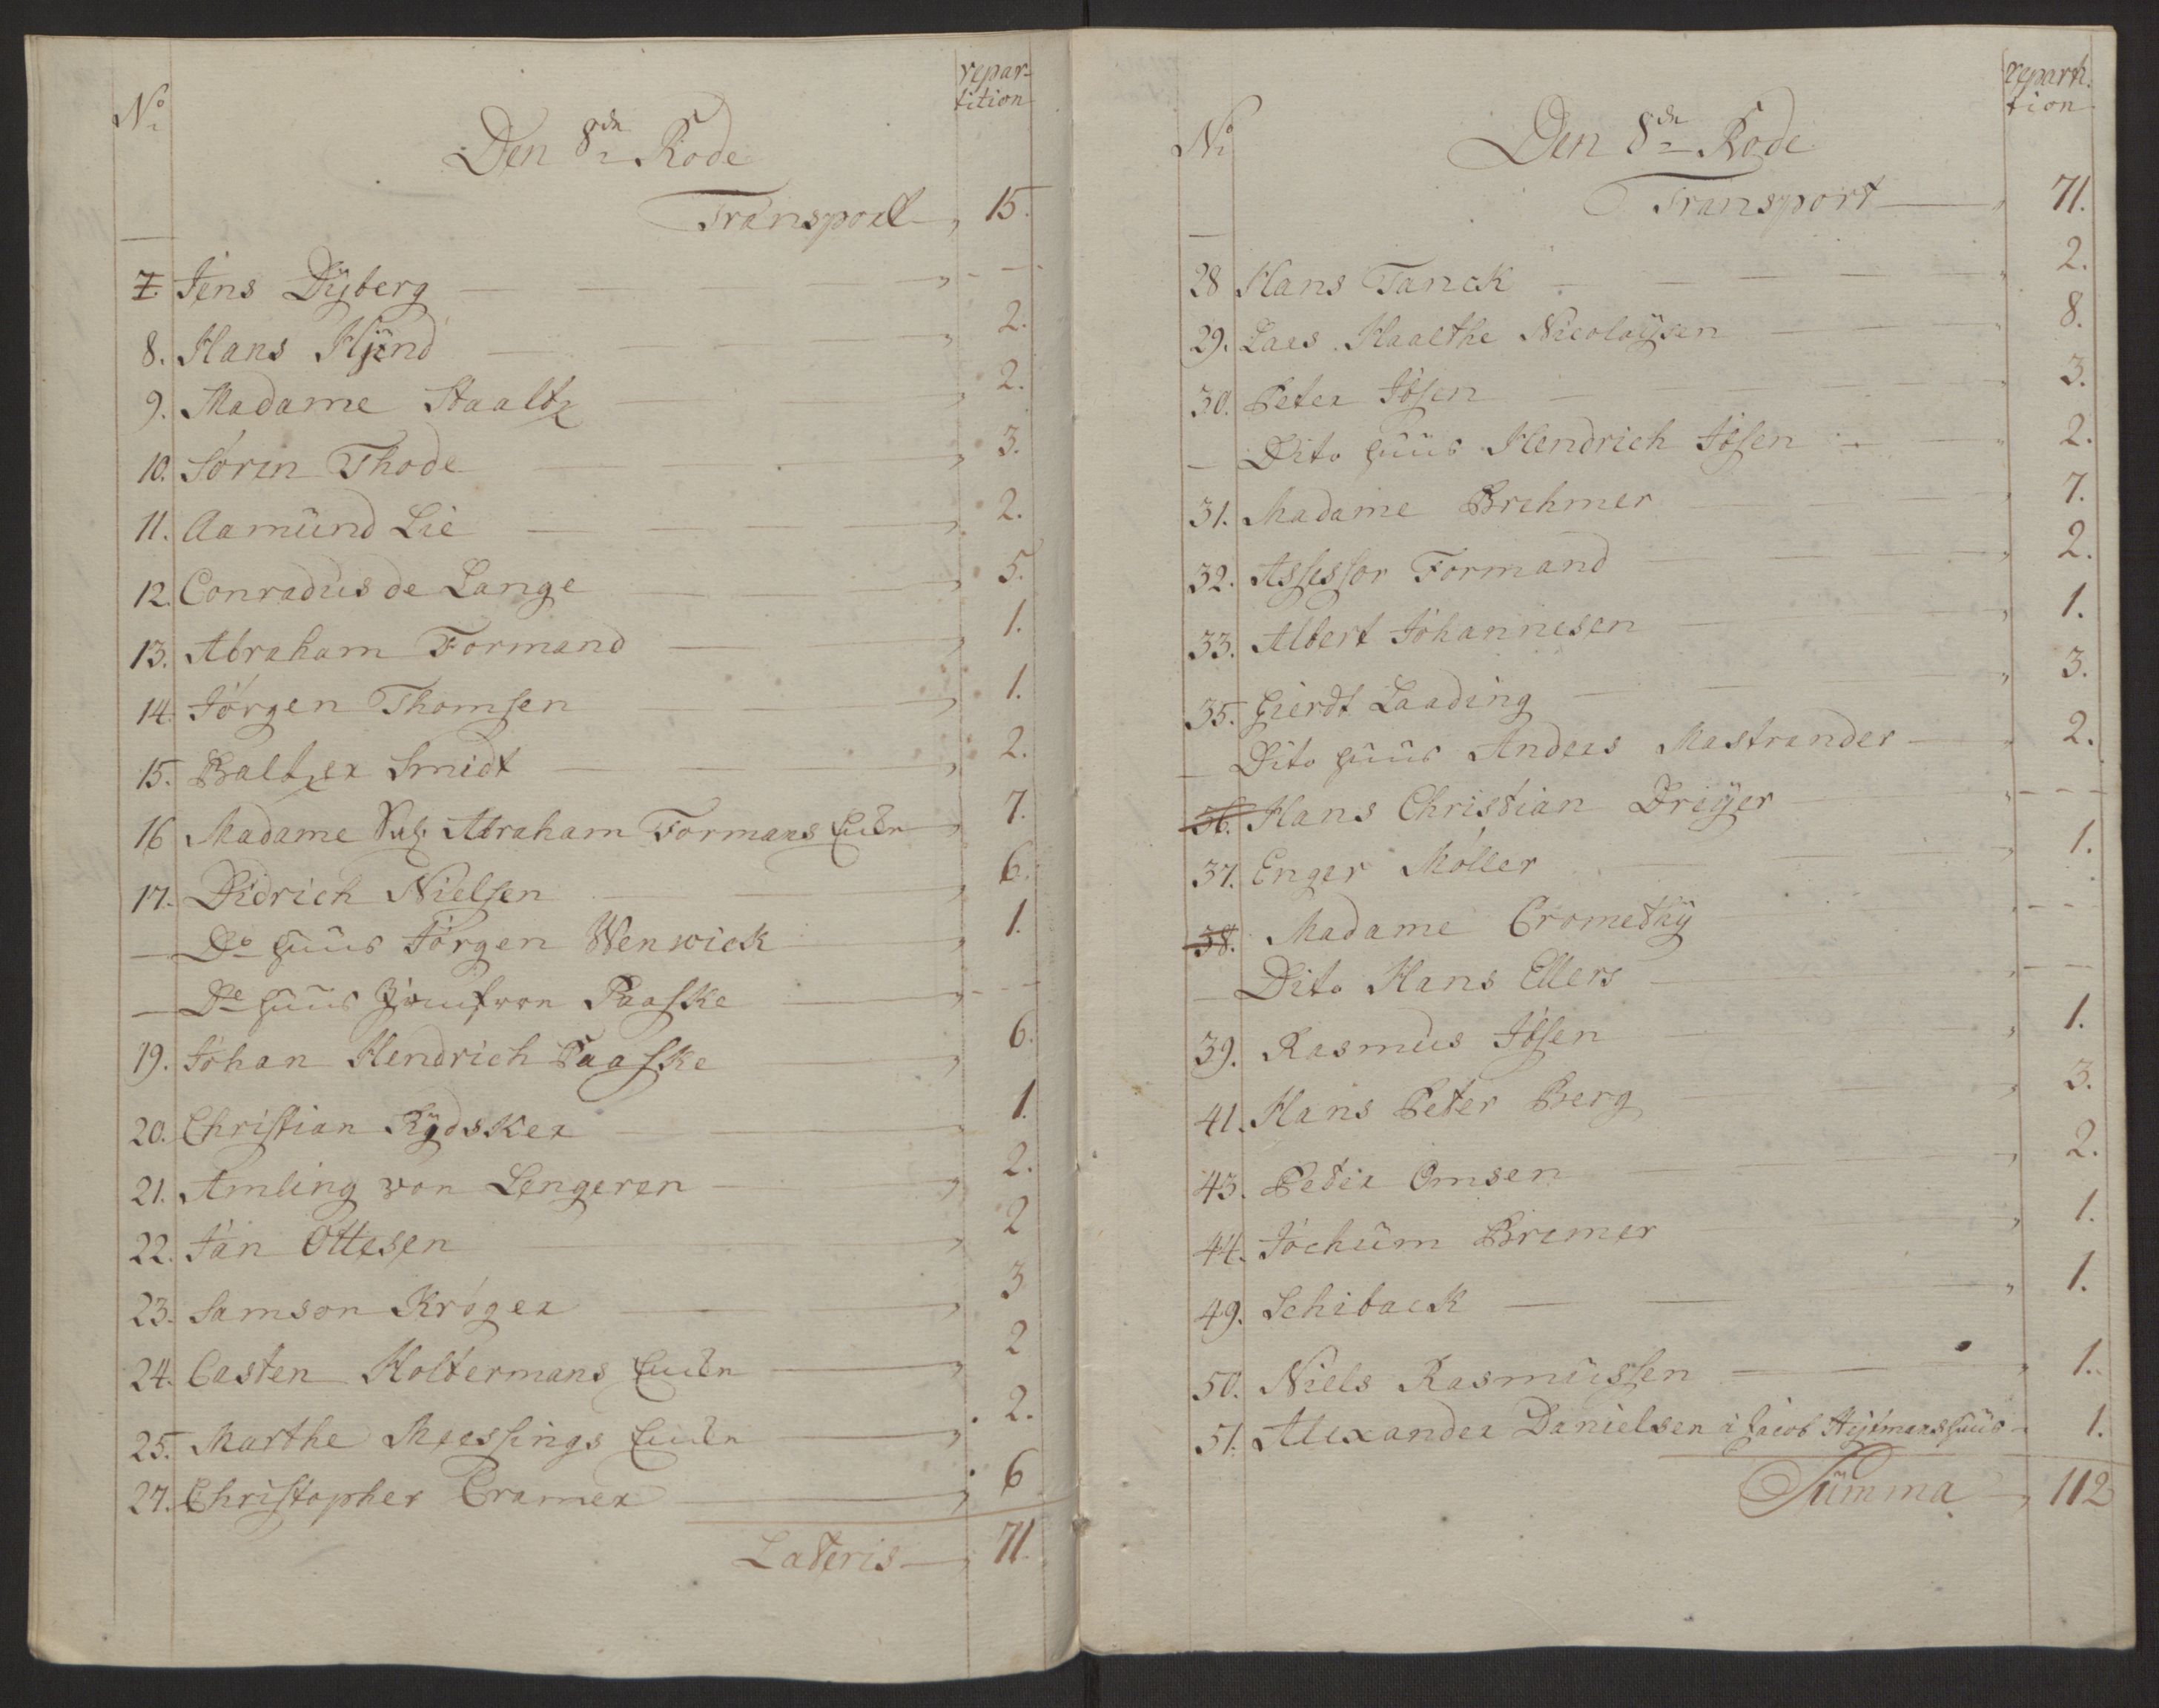 No
repar-
tition
Den 8de Rode
Transport 15.
7. Jens Dÿberg - - -
8. Hans Hÿnd 2.
9. Madame Staaltz 2.
10. Sören Thode 3.
11. Aamund Lie 2.
12. Conradus de Lange 5.
13. Abraham Formand 1.
14. Jörgen Thomsen 1.
15. Baltzer Smidt 2.
16 Madame Sal: Abraham Formans Enken 7.
17. Didrich Nielsen 6.
— Do huus Jörgen Wenwick 1.
— De huus Jomfron Paaske - - -
19. Johan Hendrich Paaske 6.
20. Christian Rÿdsker 1.
21. Amling von Lengeren 2.
22. Jan Ottesen 2
23. Samson Kröger 3
24. Casten Holtermans Enken 2
25. Marthe Meessings Enken 2.
27. Christopher Cramer 6
Lateris 71.
No
reparti
tion
Den 8de Rode
Transport 71.
28 Hans Tanck 2.
29. Lars Haalthe Nicolaÿsen 8.
30. Peter Ibsen 3.
— Dito huus Hendrich Ibsen 2.
31. Madame Brehmer 7.
32. Assessor Formand 2.
33. Albert Johannesen 1.
35. Gierdt Laading 3.
— Dito huus Anders Mastrander 2.
36. Hans Christian Drÿer - - -
37. Enger Möller 1.
38. Madame Cromethÿ - - -
— Dito Hans Ellers - -
39. Rasmus Ibsen 1.
41. Hans Peter Berg 3.
43. Peter Omsen 2.
44. Jochum Bremer 1.
49. Schiback 1.
50. Niels Rasmussen 1.
51. Alexander Danielsen i Jacob Heÿtmans huus 1.
Summa 112